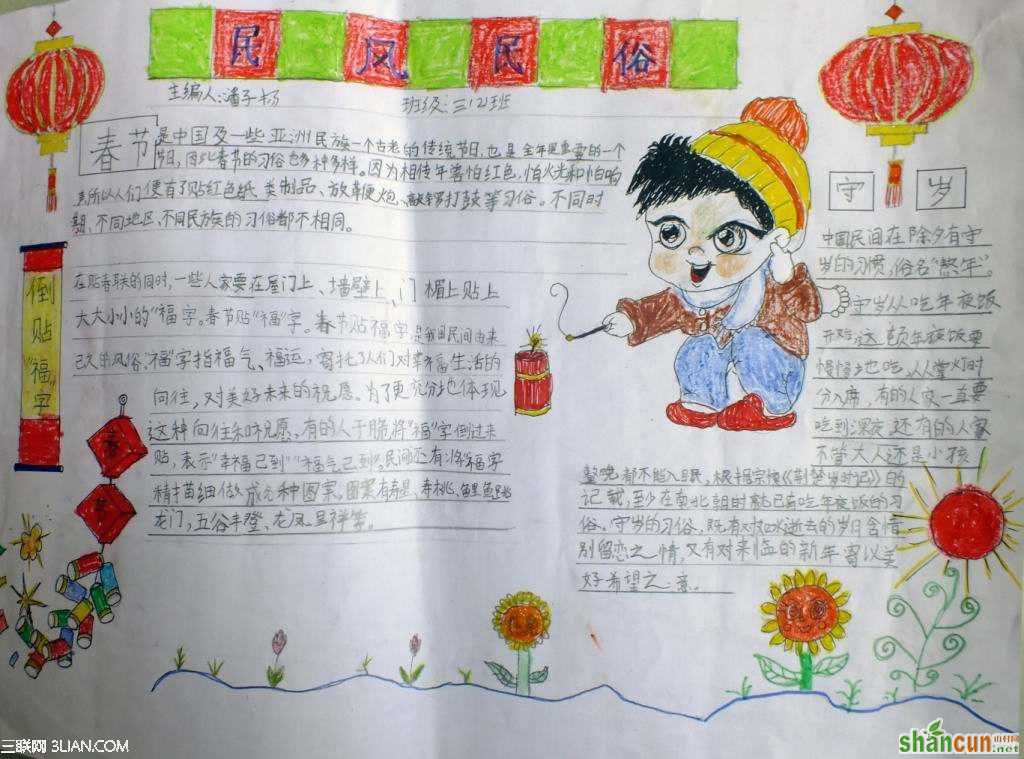 民风民俗
主编人:潘子杨
班级:三12班
春节
是中国及一些亚洲民族一个古老的传统节日,也是全年最重要的一个
节日,因此春节的习俗也多种多样。因为相传年害怕红色,怕火光和怕响
声,所以人们便有了贴红色纸类制品、放鞭炮、敲锣打鼓等习俗。不同时
期、不同地区、不同民族的习俗都不相同。
倒贴"福"字
在贴春联的同时,一些人家要在屋门上、墙壁上、门楣上贴上
大大小小的"福"字。春节贴"福"字。春节贴福字,是我国民间由来
已久的风俗。"福"字指福气、福运,寄托了人们对幸福生活的
向往,对美好未来的祝愿。为了更充分地体现
这种向往和祝愿,有的人干脆将"福"字倒过来
贴,表示"幸福已到""福气已到"。民间还有将"福"字
精描细做成各种图案,图案有寿星、寿桃、鲤鱼跳
龙门,五谷丰登、龙凤呈祥等。
春
节
守岁
中国民间在除夕有守
岁的习惯,俗名"熬年"。
守岁从吃年夜饭
开始,这顿年夜饭要
慢慢地吃,从掌灯时
分入席,有的人家一直要
吃到深夜,还有的人家
不管大人还是小孩
整晚都不能入眠,根据宗懔《荆楚岁时记》的
记载,至少在南北朝时就已有吃年夜饭的习
俗。守岁的习俗,既有对如水逝去的岁月含惜
别留恋之情,又有对来临的新年寄以美
好希望之意。
三联网 3LIAN.COM
shancun
山村网
.net